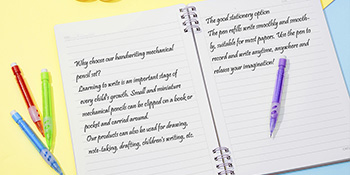 Why choose our handwriting mechanical
pencil set?
Learning to write is an important stage of
every child's growth. Small and miniature
mechanical pencils can be clipped on a book or
pocket and carried around.
Our products can also be used for drawing,
note-taking, drafting, children's writing, etc.
The good stationery option
The pen refills write smoothly and smooth-
ly, suitable for most papers. Use the pen to
record and write anytime, anywhere and
release your imagination!